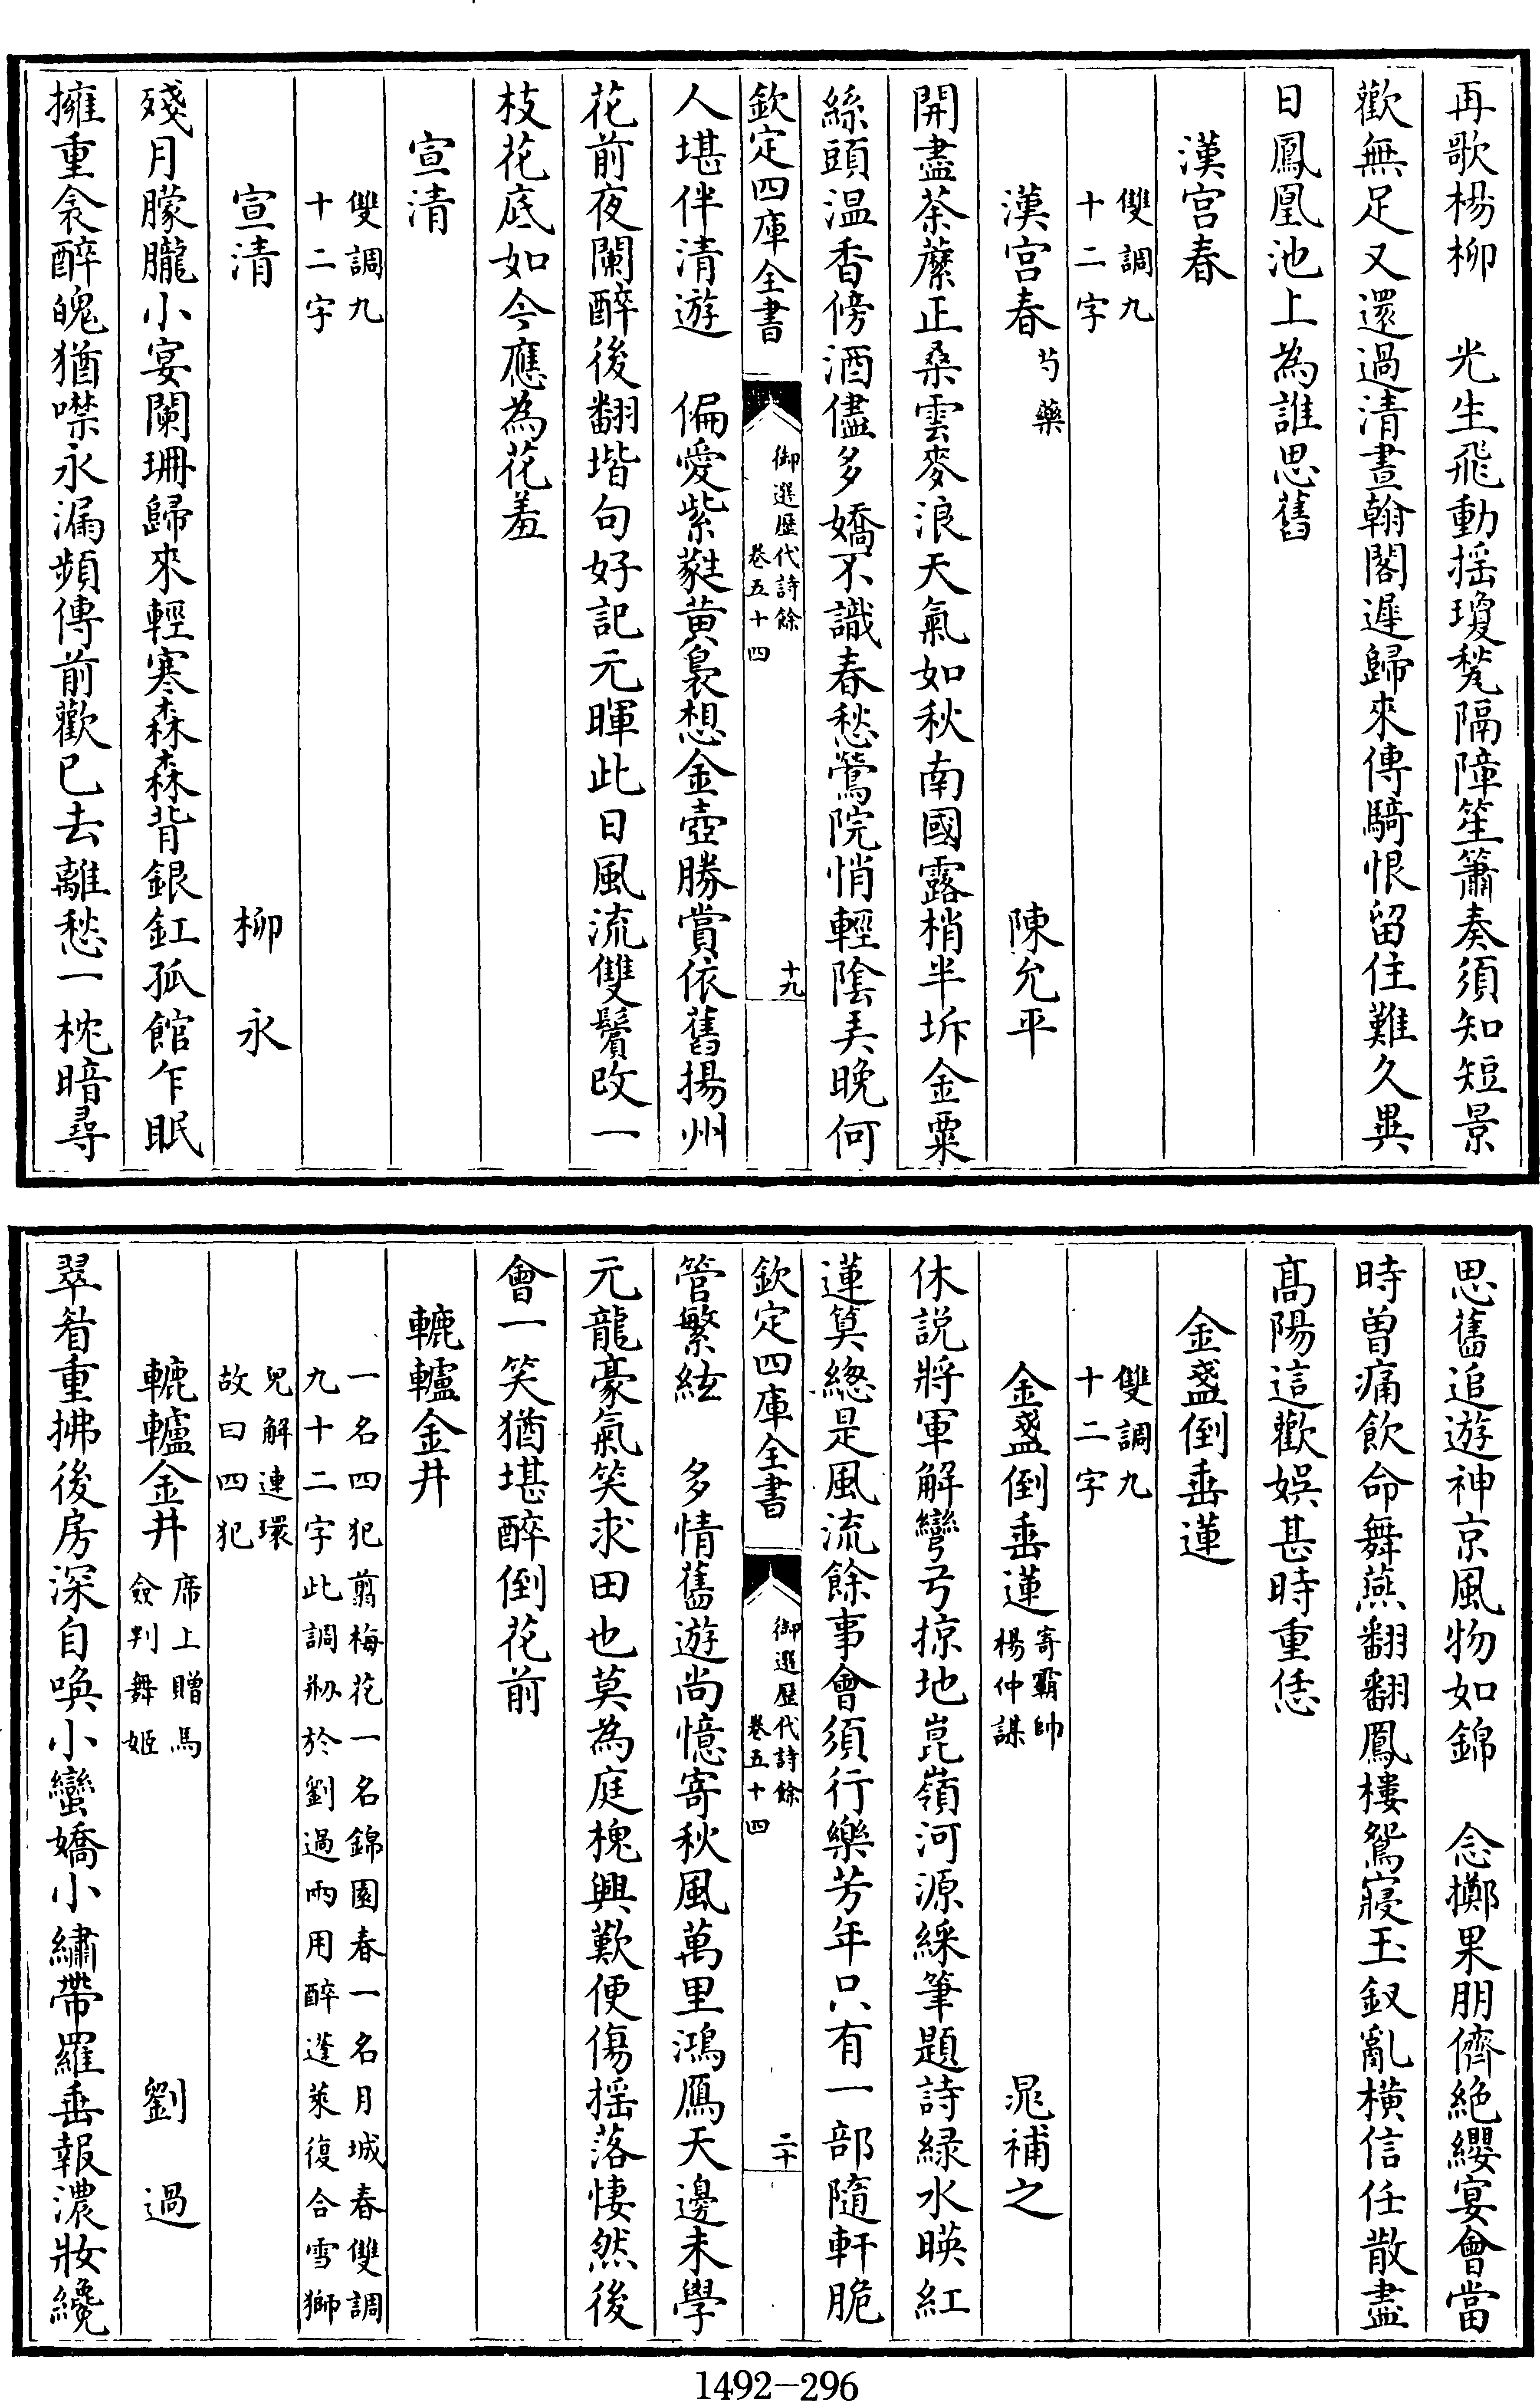 再歌楊柳　光生飛動搖瓊甃隔障笙簫奏須知短景
歡無足又還過清晝翰閣遲歸來傳騎恨留住難久異
日鳳凰池上為誰思舊
漢宮春
雙調九
十二字
漢宮春 芍藥 陳允平
開盡荼蘼正桑雲麥浪天氣如秋南國露梢半坼金粟
絲頭温香傍酒儘多嬌不識春愁鶯院悄輕陰弄晚何
欽定四庫全書
御選歷代詩餘
卷五十四
十九
人堪伴清遊　偏愛紫蕤黃裊想金壺勝賞依舊揚州
花前夜闌醉後翻堦句好記元暉此日風流雙鬢改一
枝花底如今應為花羞
宣清
雙調九
十二字
宣清 柳永
殘月朦朧小宴闌珊歸來輕寒森森背銀釭孤館乍眠
擁重衾醉魄猶噤永漏頻傳前歡已去離愁一枕暗尋
思舊追遊神京風物如錦　念擲果朋儕絶纓宴會當
時曾痛飲命舞燕翻翻鳳樓鴛寢玉釵亂橫信任散盡
高陽這歡娛甚時重恁
金盞倒垂蓮
雙調九
十二字
金盞倒垂蓮 寄霸帥楊仲謀 晁補之
休説將軍解彎弓掠地崑嶺河源綵筆題詩緑水暎紅
蓮算總是風流餘事會須行樂芳年只有一部隨軒脆
欽定四庫全書
御選歷代詩餘
卷五十四
二十
管繁絃　多情舊遊尚憶寄秋風萬里鴻鴈天邊未學
元龍豪氣笑求田也莫為庭槐興歎便傷搖落悽然後
會一笑猶堪醉倒花前
轆轤金井
一名四犯翦梅花一名錦園春一名月城春雙調
九十二字此調剏於劉過兩用醉蓬萊復合雪獅
兒解連環
故曰四犯
轆轤金井 席上贈馬僉判舞姬 劉過
翠眉重拂後房深自喚小蠻嬌小繡帶羅垂報濃妝纔
1492-296